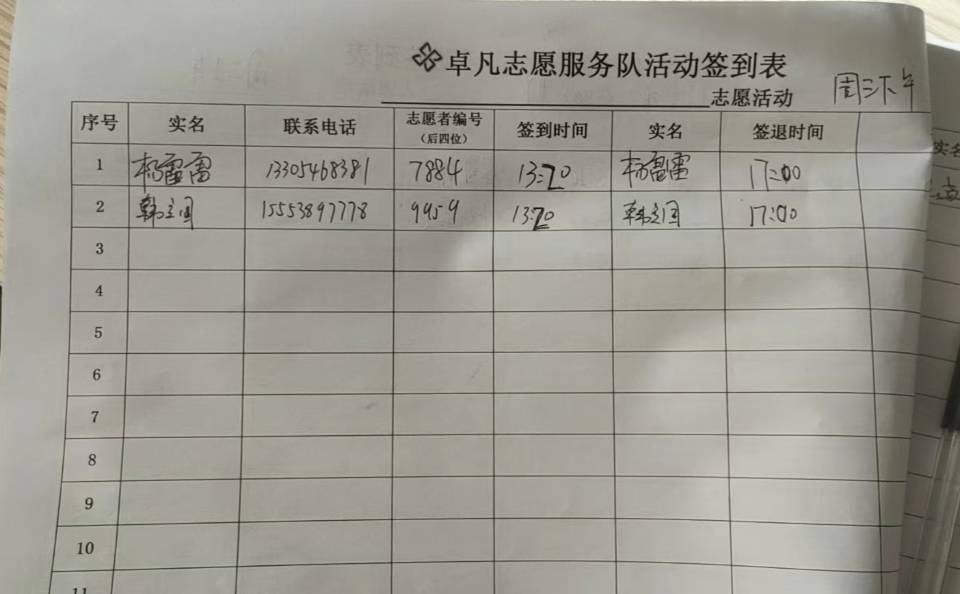 卓凡志愿服务队活动签到表
志愿活动 周三下午
序号 实名 联系电话 志愿者编号（后四位） 签到时间 实名 签退时间
1 杨雷雷 13305468381 7884 13:20 杨雷雷 17:00
2 韩立国 15553897778 9959 13:20 韩立国 17:00
3
4
5
6
7
8
9
10
11
实名